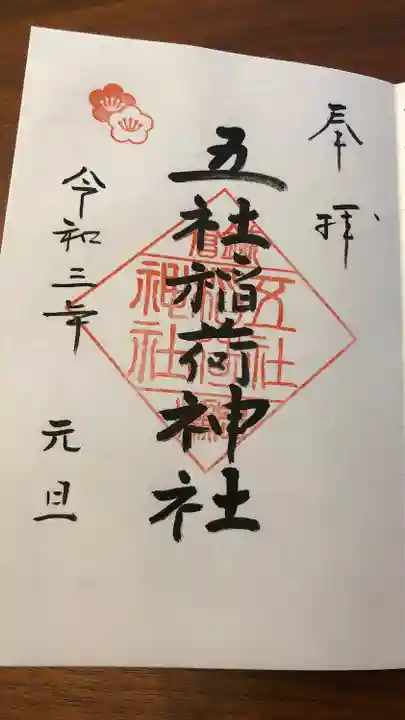 奉拝
五社稲荷神社
五社
稲荷
神社
令和三年 元旦